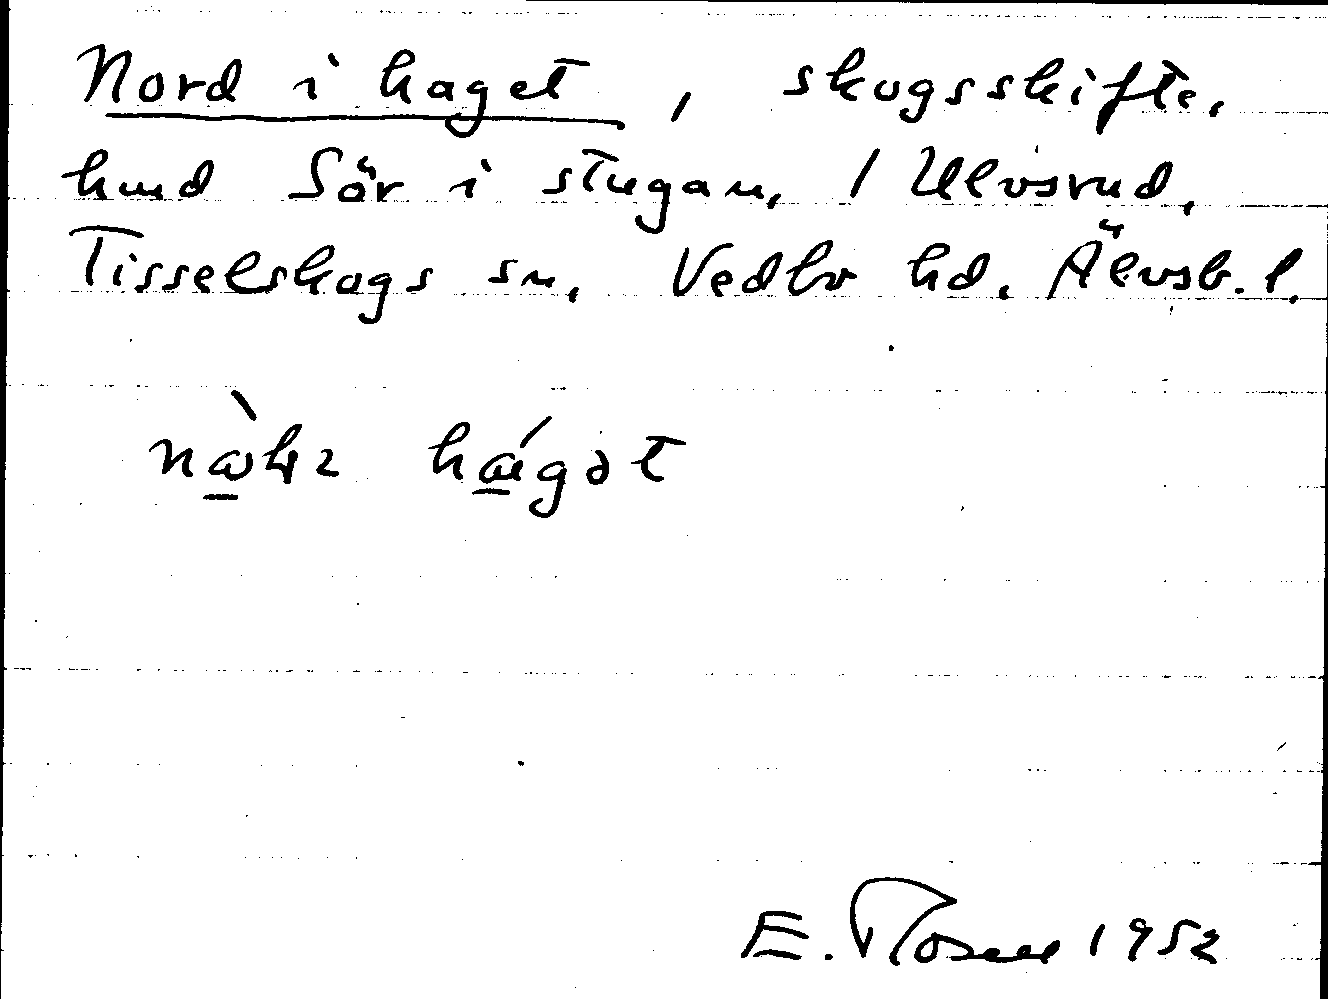 Nord i haget, skogsskifte,
hmd Sör i stugan, 1 Ulvsrud,
Tisselskogs sn, Vedbo hd. Älvsb. l.
hágət
E. Rosell 1952